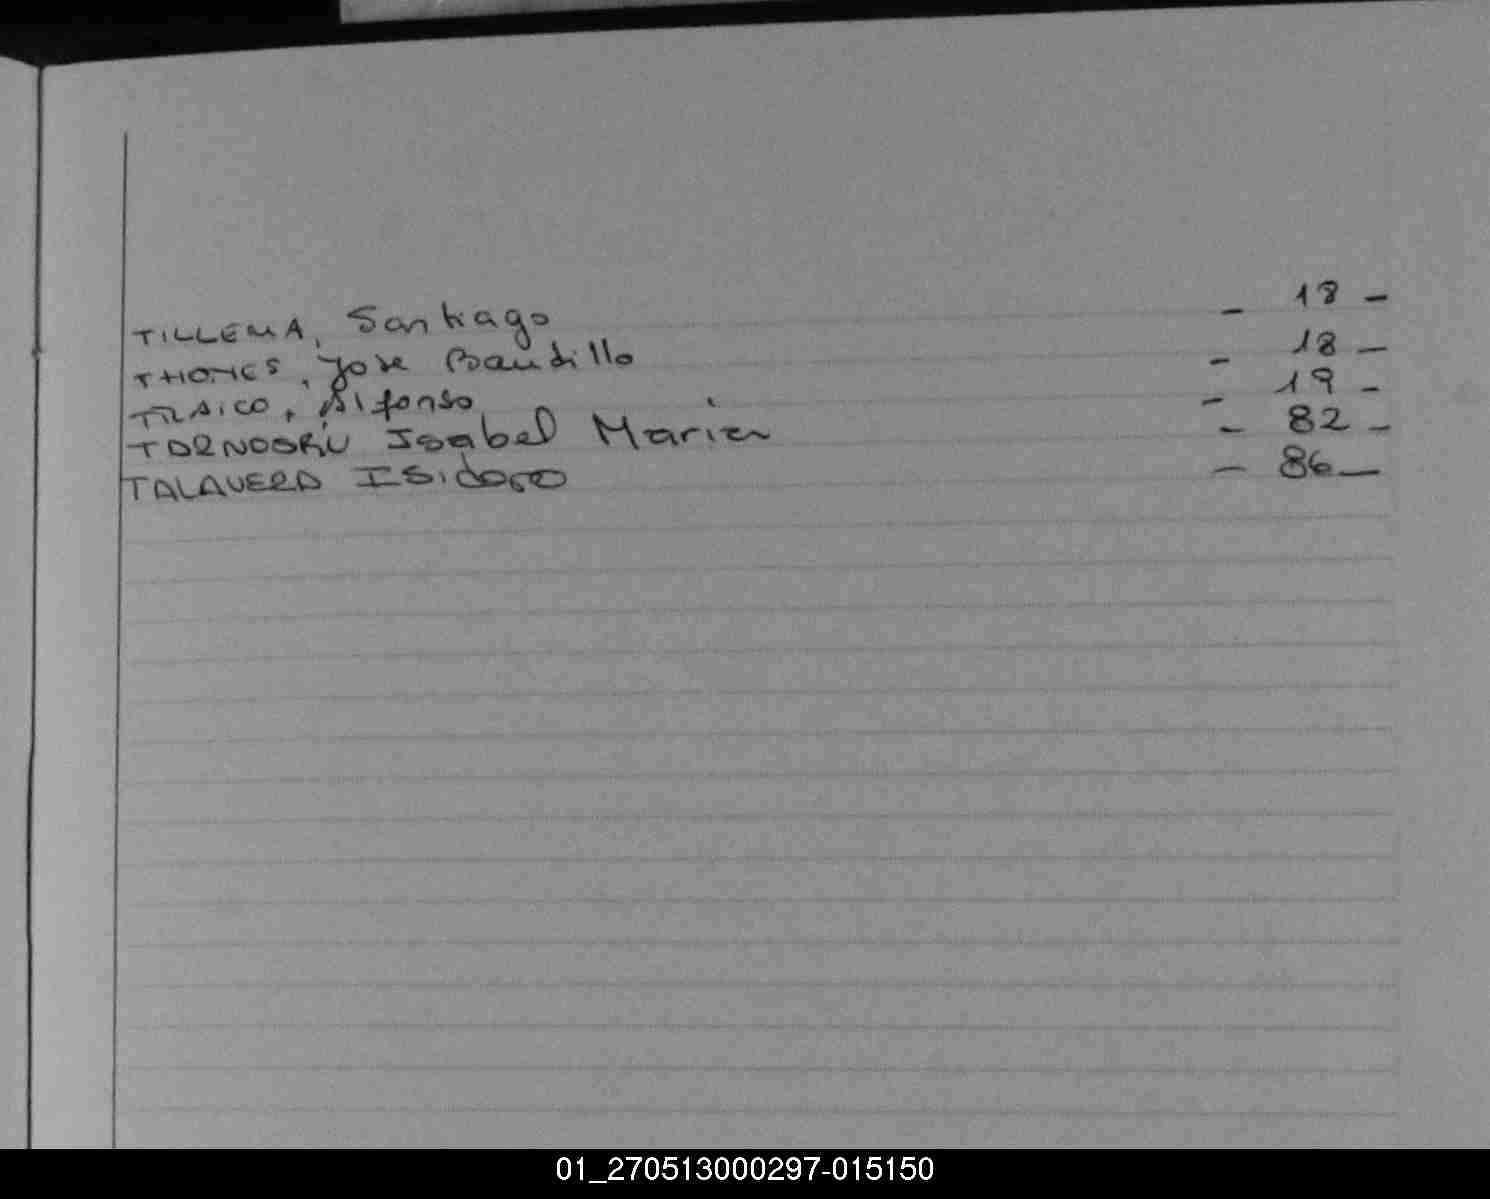 TILLEMA, Santiago - 18 -
THOMES, Jose Baudillo - 18 -
TRAICO, Alfonso - 19 -
Isabel Maria - 82 -
TALAVERA ISidoro - 86 -
01_270513000297-015150